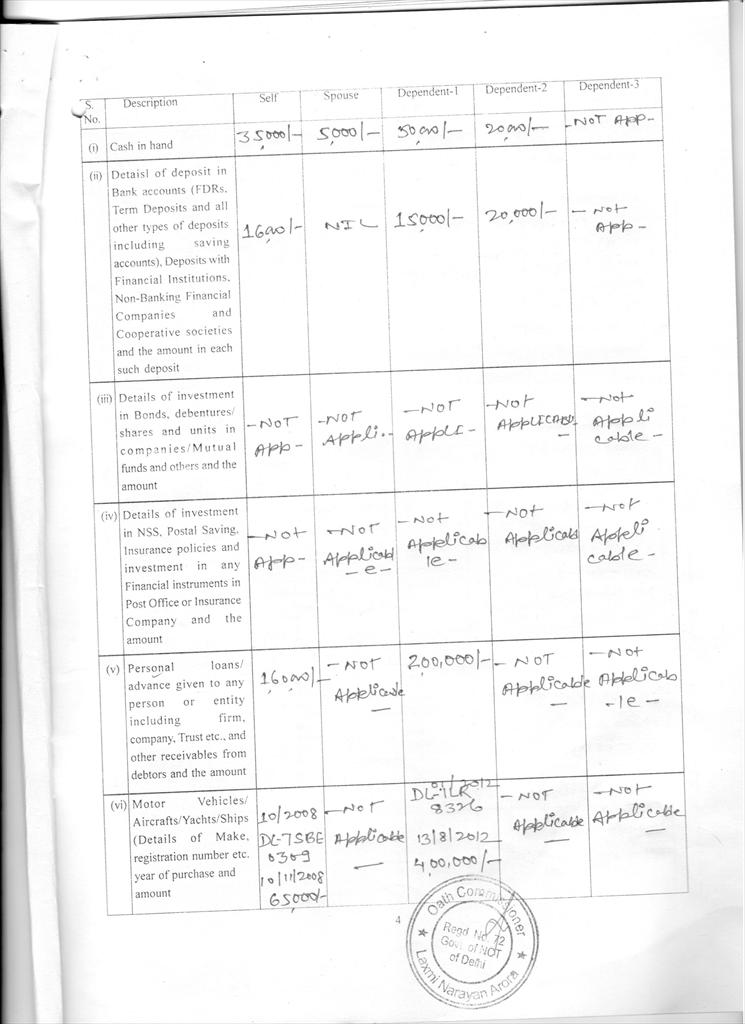 S. No. Description Self Spouse Dependent-1 Dependent-2 Dependent-3
(i) Cash in hand 35,000/- 5,000/- 50,000/- 20,000/- -NOT APP-
(ii) Detaisl of deposit in
Bank accounts (FDRs,
Term Deposits and all
other types of deposits
including saving
accounts), Deposits with
Financial Institutions,
Non-Banking Financial
Companies and
Cooperative societies
and the amount in each
such deposit
NIL 15,000/- 20,000/- - Not
App -
(iii) Details of investment
in Bonds, debentures/
shares and units in
companies/Mutual
funds and others and the
amount
- NOT
App -
- NOT
Appli. -
- NOT
APPLI -
- NOT
APPLICABL
-
- Not
Appli
cable -
(iv) Details of investment
in NSS, Postal Saving,
Insurance policies and
investment in any
Financial instruments in
Post Office or Insurance
Company and the
amount
- Not
App -
- NOT
Applicabl
- e -
- Not
Applicab
le -
- Not
Applicabl
- Not
Appli
cable -
(v) Personal loans/
advance given to any
person or entity
including firm,
company, Trust etc., and
other receivables from
debtors and the amount
- NOT
Applicable
-
200,000/-
- NOT
Applicable
-
- Not
Applicab
- le -
(vi) Motor Vehicles/
Aircrafts/Yachts/Ships
(Details of Make,
registration number etc.
year of purchase and
amount
10/2008
DL-7SBE
0309
10/11/2008
65000/-
- Not
Applicable
-
DL-1LR
8326
13/8/2012
4,00,000/-
- NOT
Applicable
-
- Not
Applicable
-
4
Oath Commissioner
Regd No. 72
Govt of NCT
of Delhi
Laxmi Narayan Arora